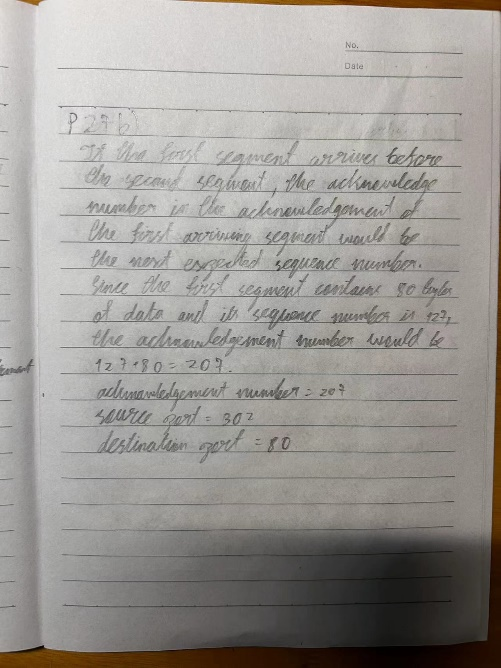 No.
Date
P 27 b)
If the first segment arrives before
the second segment, the acknowledge
number in the acknowledgement of
the first arriving segment would be
the next expected sequence number.
Since the first segment contains 80 bytes
of data and its sequence number is 127,
the acknowledgement number would be
127+80 = 207.
acknowledgement number = 207
source port = 302
destination port = 80